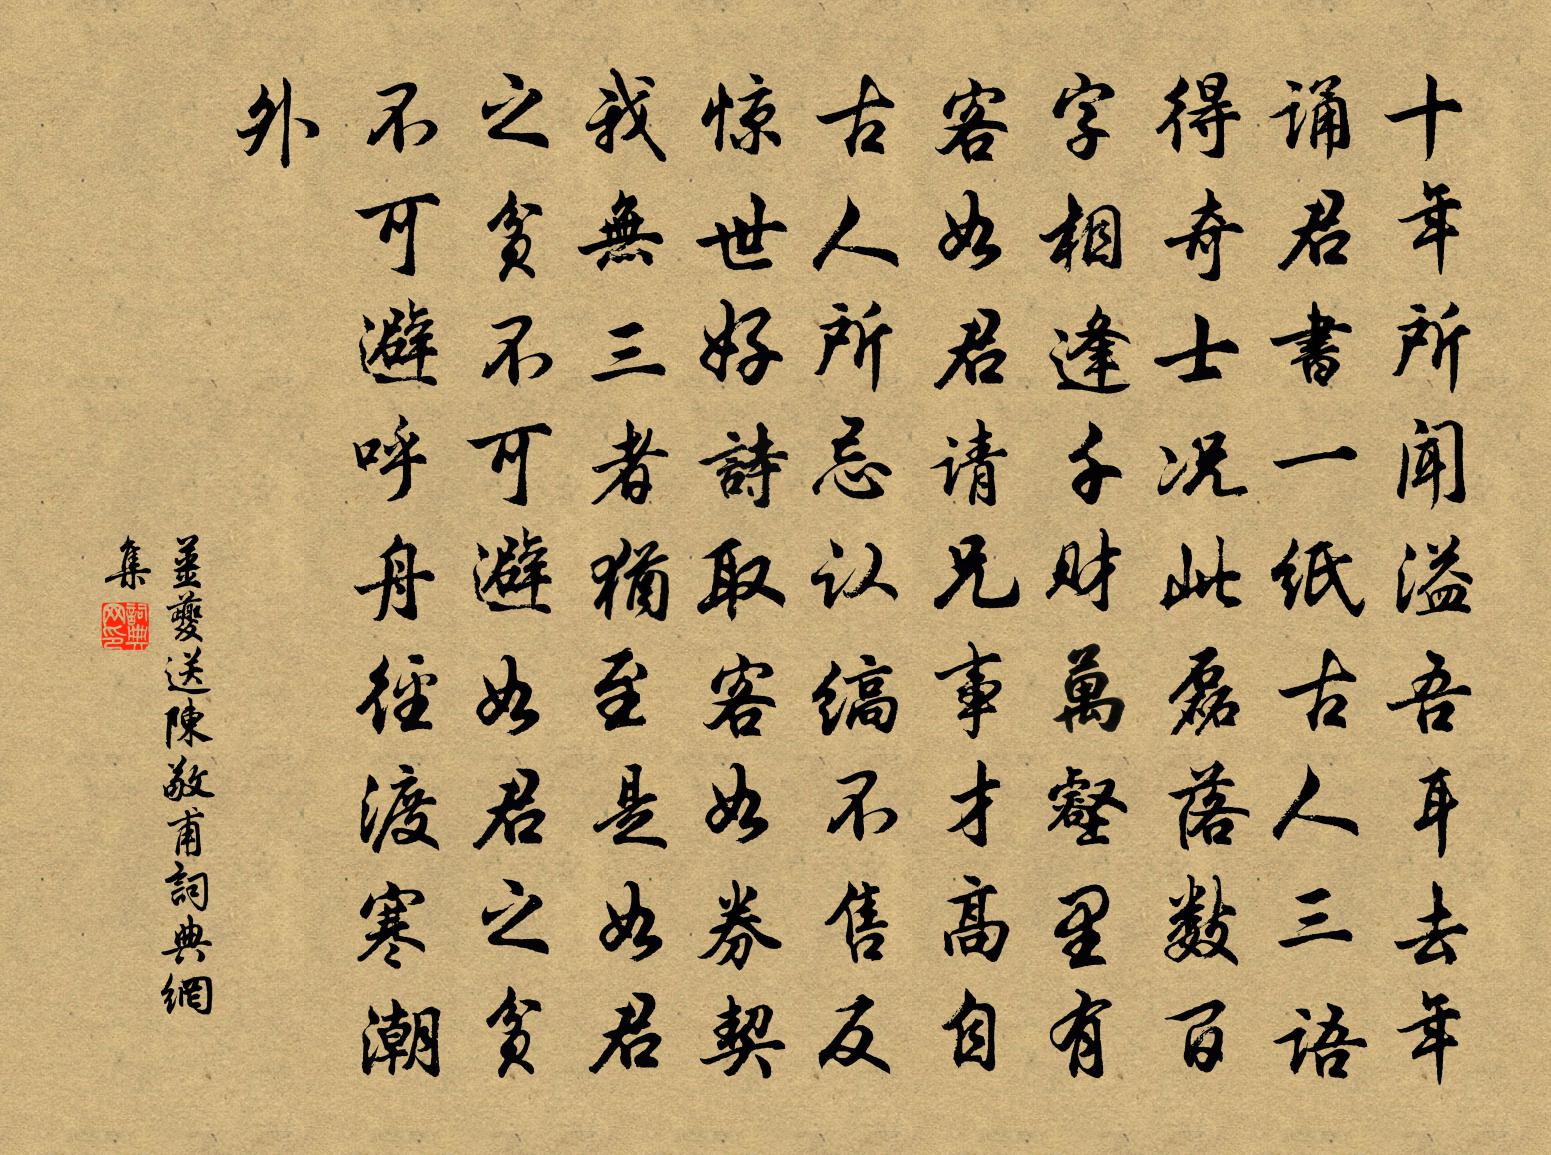 十年所闻溢吾耳去年
诵君書一紙古人三语
得奇士况此磊落数百
字相逢千财萬壑里有
客如君请兄事才高自
古人所忌认缟不售反
惊世好詩取客如券契
我無三者犹至是如君
之貧不可避如君之貧
不可避呼舟徑渡寒潮
外
姜夔送陳敬甫詞典網
集
詞典網印